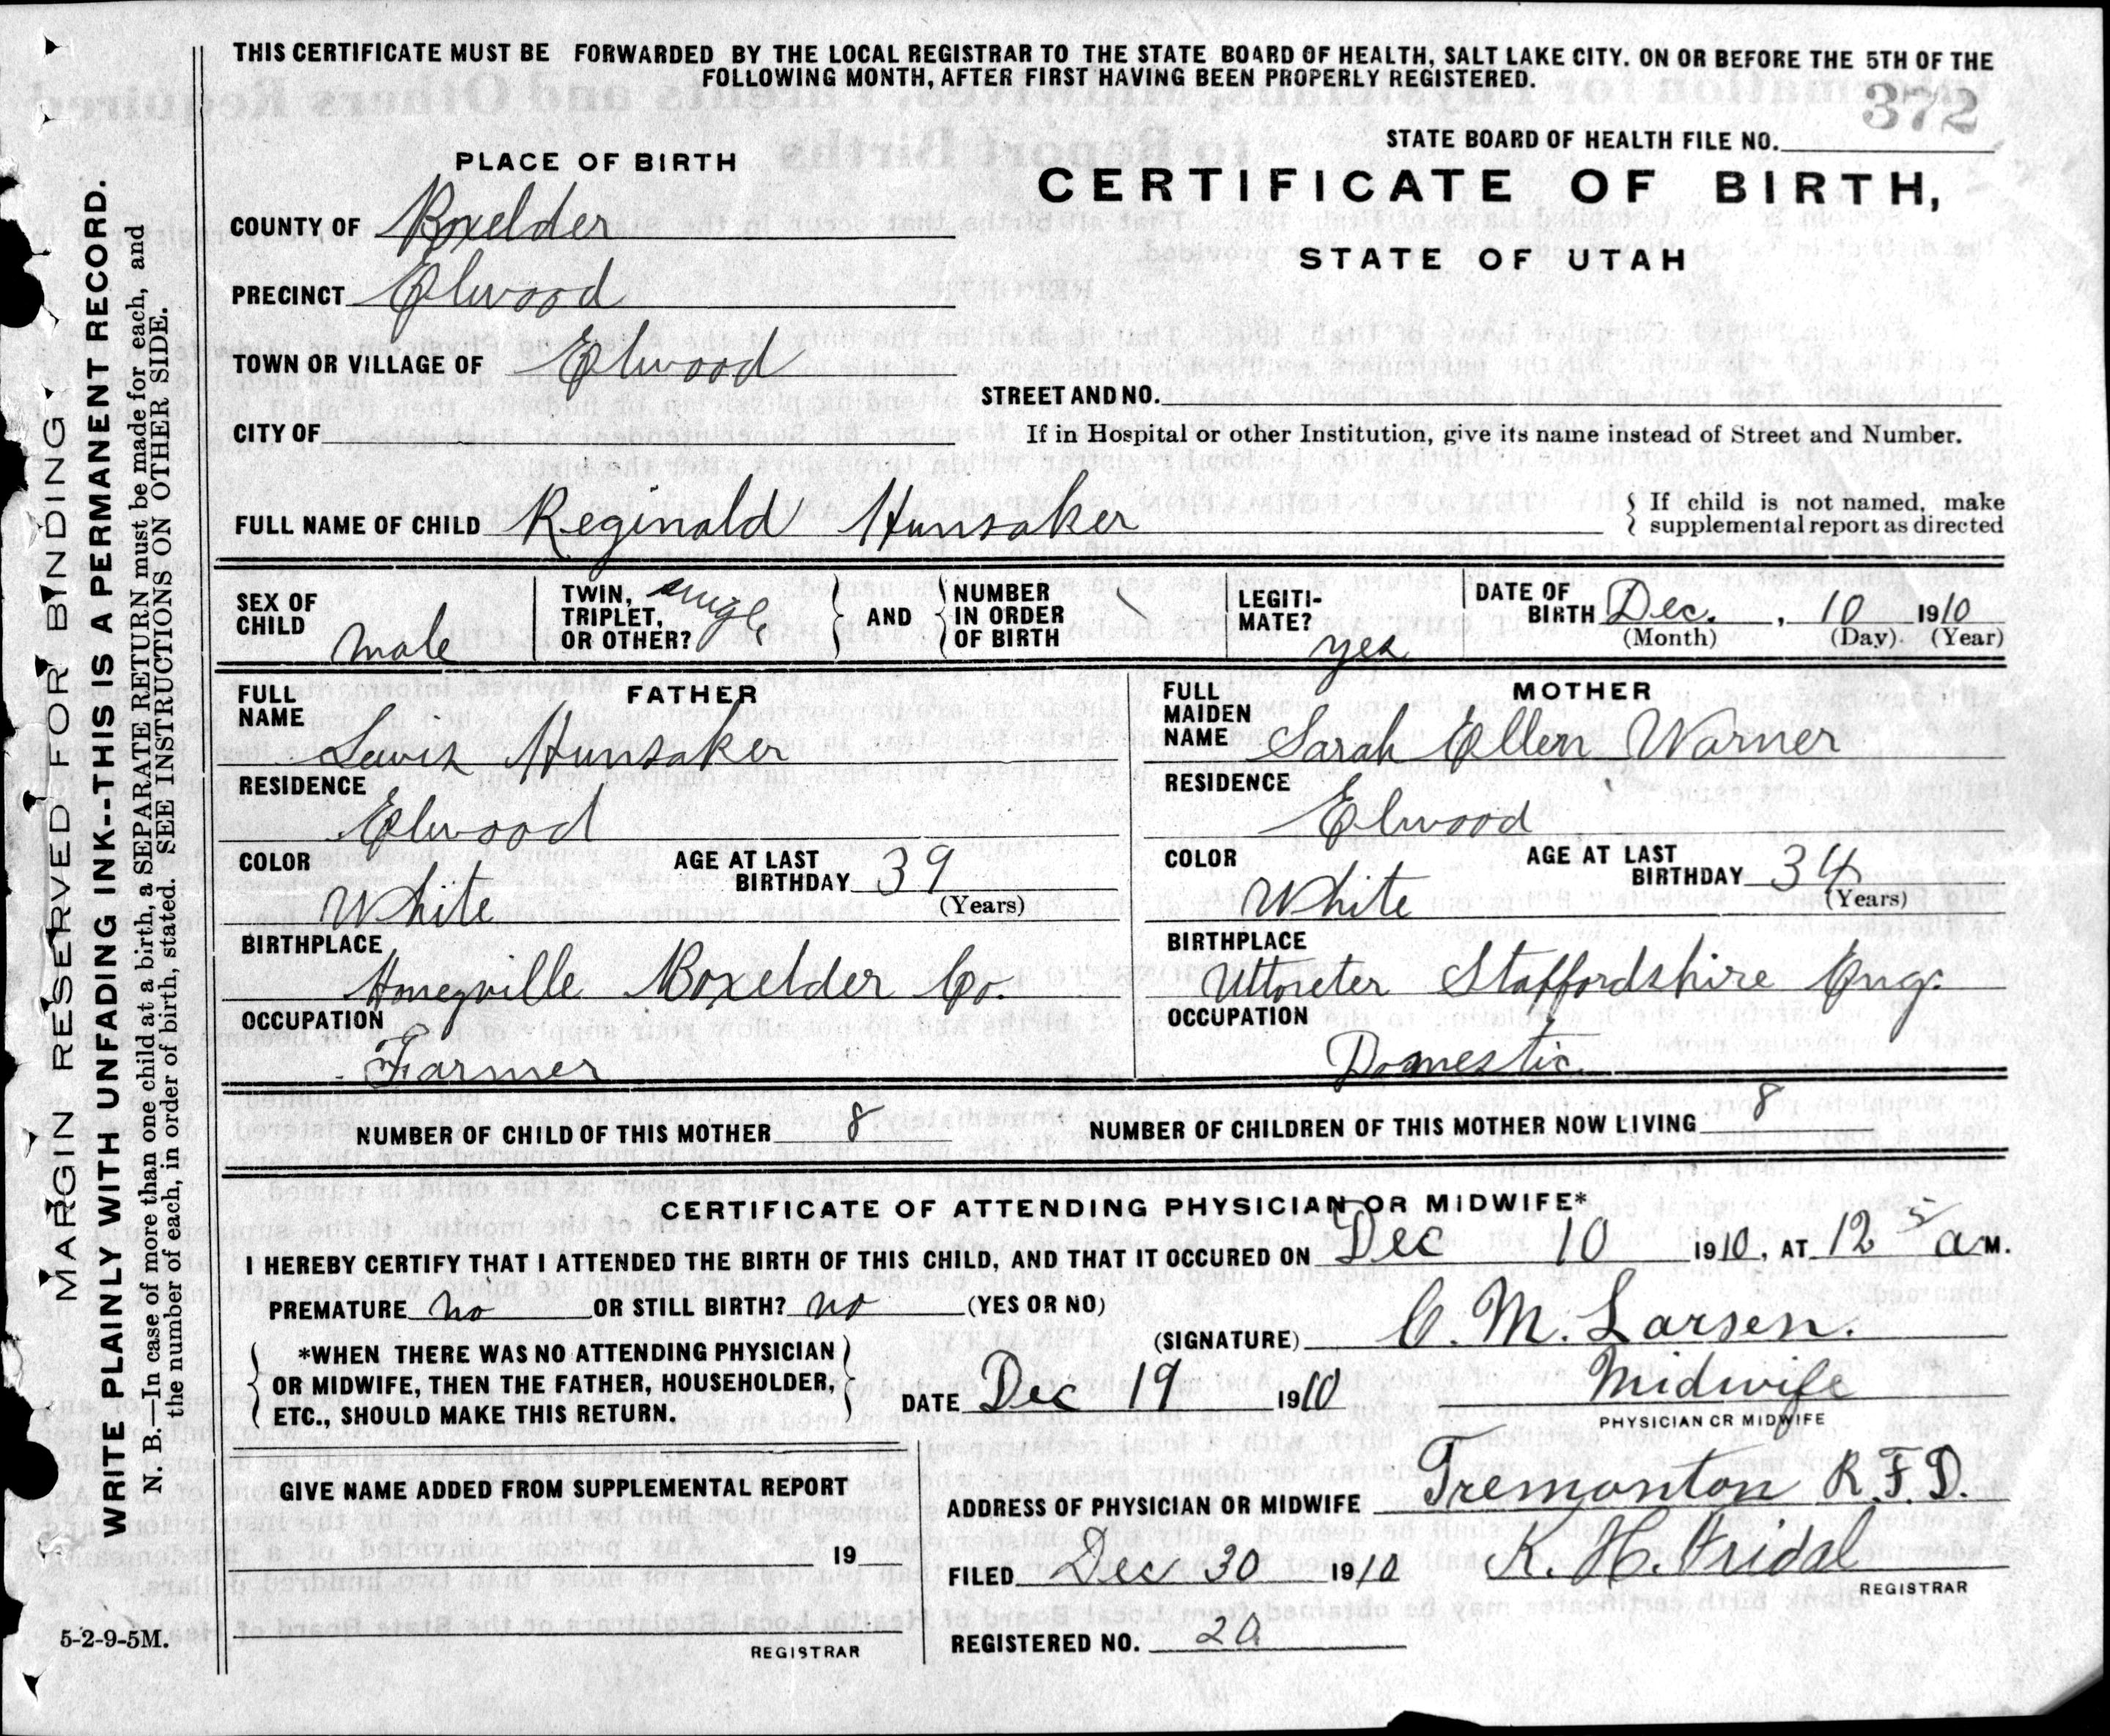 THIS CERTIFICATE MUST BE FORWARDED BY THE LOCAL REGISTRAR TO THE STATE BOARD OF HEALTH, SALT LAKE CITY. ON OR BEFORE THE 5TH OF THE
FOLLOWING MONTH, AFTER FIRST HAVING BEEN PROPERLY REGISTERED.
372
STATE BOARD OF HEALTH FILE NO.
PLACE OF BIRTH
CERTIFICATE OF BIRTH,
STATE OF UTAH
COUNTY OF Boxelder
PRECINCT Elwood
TOWN OR VILLAGE OF Elwood
STREET AND NO.
CITY OF
If in Hospital or other Institution, give its name instead of Street and Number.
FULL NAME OF CHILD Reginald Hunsaker
If child is not named, make
supplemental report as directed
SEX OF CHILD male
TWIN, TRIPLET, OR OTHER? single
AND
NUMBER IN ORDER OF BIRTH
LEGITI-MATE? yes
DATE OF BIRTH Dec. , 10 1910
(Month) (Day). (Year)
FATHER
FULL NAME Lewis Hunsaker
RESIDENCE
Elwood
COLOR White
AGE AT LAST BIRTHDAY 39
(Years)
BIRTHPLACE
Honeyville Boxelder Co.
OCCUPATION
Farmer
MOTHER
FULL MAIDEN NAME Sarah Ellen Warner
RESIDENCE
Elwood
COLOR White
AGE AT LAST BIRTHDAY 34
(Years)
BIRTHPLACE
Uttoreter Staffordshire Eng.
OCCUPATION
Domestic
NUMBER OF CHILD OF THIS MOTHER 8
NUMBER OF CHILDREN OF THIS MOTHER NOW LIVING 8
CERTIFICATE OF ATTENDING PHYSICIAN OR MIDWIFE*
I HEREBY CERTIFY THAT I ATTENDED THE BIRTH OF THIS CHILD, AND THAT IT OCCURED ON Dec 10 1910, AT 12 5 a M.
PREMATURE no OR STILL BIRTH? no (YES OR NO)
(SIGNATURE) C. M. Larsen.
*WHEN THERE WAS NO ATTENDING PHYSICIAN
OR MIDWIFE, THEN THE FATHER, HOUSEHOLDER,
ETC., SHOULD MAKE THIS RETURN.
DATE Dec 19 1910
Midwife
PHYSICIAN OR MIDWIFE
GIVE NAME ADDED FROM SUPPLEMENTAL REPORT
19
REGISTRAR
ADDRESS OF PHYSICIAN OR MIDWIFE Tremonton R.F.D.
FILED Dec 30 1910
K. H. Fridal
REGISTRAR
REGISTERED NO. 20
5-2-9-5M.
MARGIN RESERVED FOR BINDING
WRITE PLAINLY WITH UNFADING INK--THIS IS A PERMANENT RECORD.
N. B.—In case of more than one child at a birth, a SEPARATE RETURN must be made for each, and
the number of each, in order of birth, stated. SEE INSTRUCTIONS ON OTHER SIDE.